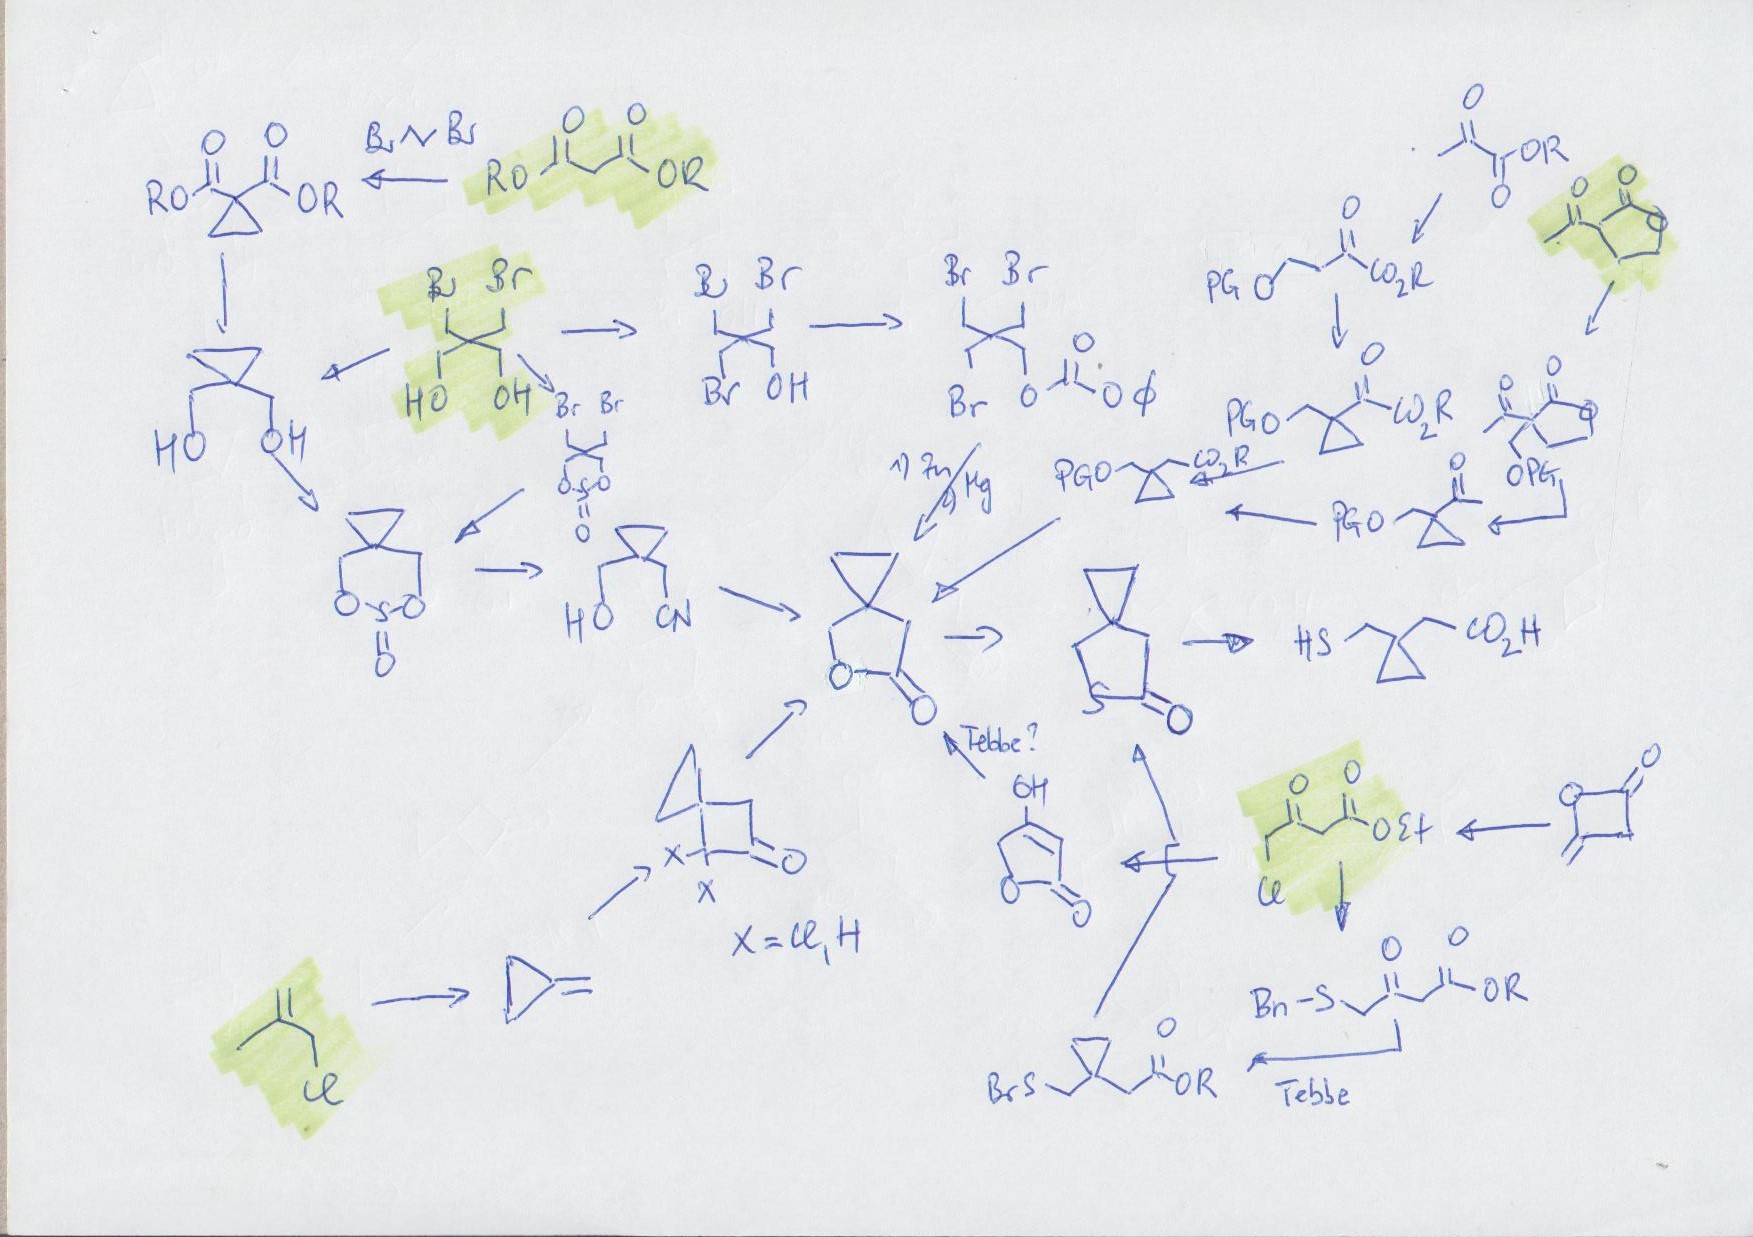 O O Br Br O O
RO OR RO OR
O
OR
O
O O
O
PG O CO2R
O
Br Br Br Br Br Br
HO OH Br OH Br O O O ϕ
Br Br
O S O
O
O
PGO CO2R
O O O
OPG
PGO CO2R
O
PGO
1) Zn 2) Mg
HO OH
O S O
O
HO CN
O O
S O
HS CO2H
Tebbe?
OH
O O
O O
OEt
Cl
O O
X O
X
X = Cl, H
Bn-S O O
OR
Cl
BrS O
OR
Tebbe